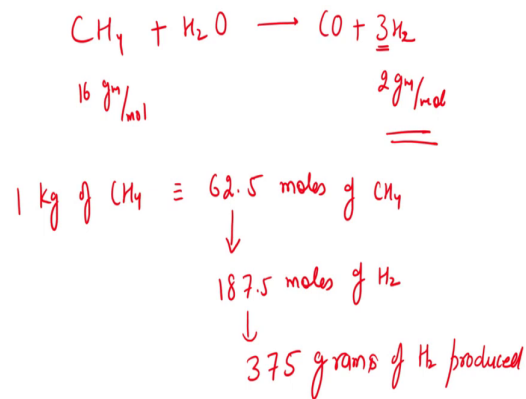 CH₄ + H₂O → CO + 3H₂
16 gm/mol 2 gm/mol
1 kg of CH₄ ≡ 62.5 moles of CH₄
↓
187.5 moles of H₂
↓
375 grams of H₂ produced